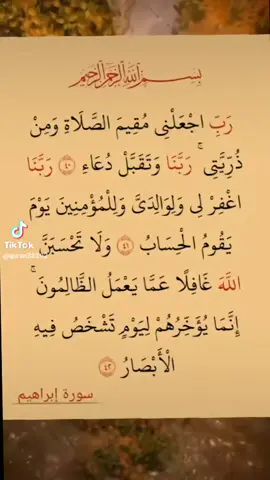 بسم الله الرحمن الرحيم
رَبِّ اجْعَلْنِى مُقِيمَ الصَّلَاةِ وَمِنْ
ذُرِّيَّتِى ۚ رَبَّنَا وَتَقَبَّلْ دُعَاءِ ٤٠ رَبَّنَا
اغْفِرْ لِى وَلِوَالِدَىَّ وَلِلْمُؤْمِنِينَ يَوْمَ
يَقُومُ الْحِسَابُ ٤١ وَلَا تَحْسَبَنَّ
اللَّهَ غَافِلًا عَمَّا يَعْمَلُ الظَّالِمُونَ ۚ
إِنَّمَا يُؤَخِّرُهُمْ لِيَوْمٍ تَشْخَصُ فِيهِ
الْأَبْصَارُ ٤٢
سورة إبراهيم
TikTok